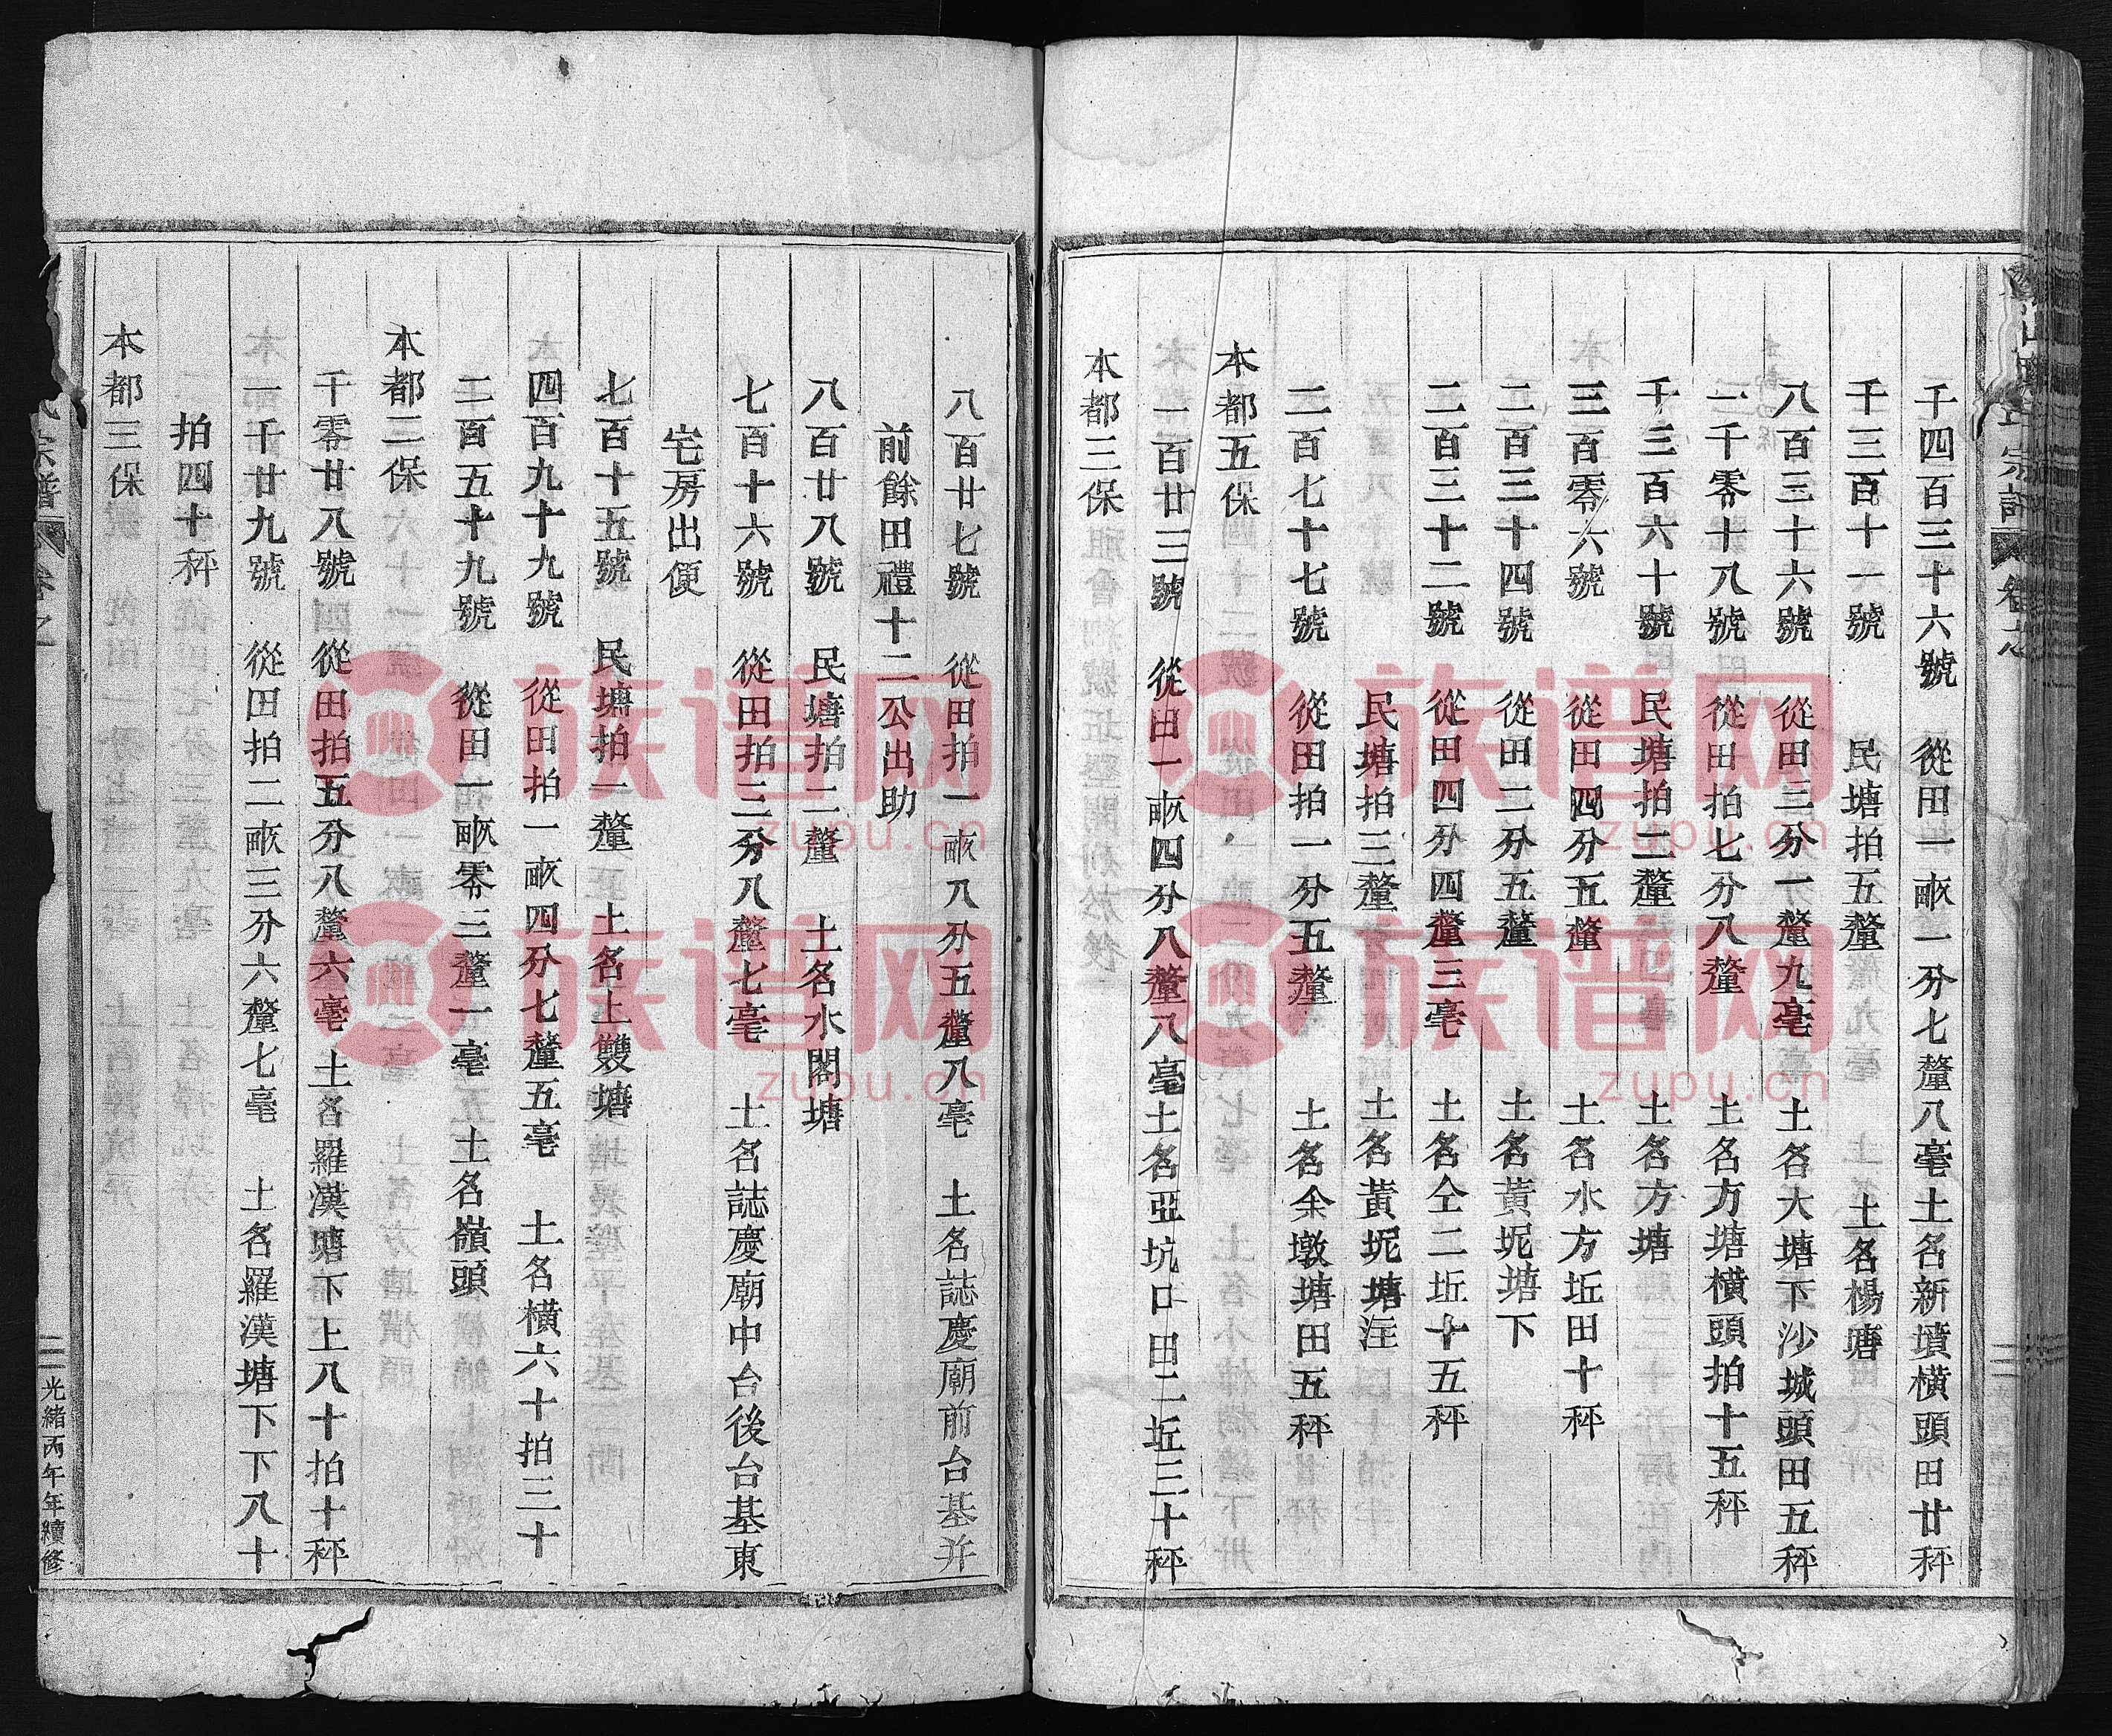 千四百三十六號 從田一畝一分七釐八毫土名新墳橫頭田廿秤
千三百十一號 民塘拍五釐 土名楊塘
八百三十六號 從田三分一釐九毫 土名大塘下沙城頭田五秤
一千零十八號 從田拍七分八釐 土名方塘橫頭拍十五秤
千三百六十號 民塘拍二釐 土名方塘
三百零六號 從田四分五釐 土名水方坵田十秤
二百三十四號 從田二分五釐 土名黃坭塘下
二百三十二號 從田四分四釐三毫 土名仝二坵十五秤
民塘拍三釐 土名黃坭塘注
二百七十七號 從田拍一分五釐 土名余墩塘田五秤
本都五保
一百廿三號 從田一畝四分八釐八毫土名亞坑口田二坵三十秤
本都三保
八百廿七號 從田拍一畝八分五釐八毫 土名誌慶廟前台基并
前餘田禮十二公出助
八百廿八號 民塘拍二釐 土名水閣塘
七百十六號 從田拍三分八釐七毫 土名誌慶廟中台後台基東
宅房出便
七百十五號 民塘拍一釐 土名上雙塘
四百九十九號 從田拍一畝四分七釐五毫 土名橫六十拍三十
二百五十九號 從田一畝零三釐一毫 土名嶺頭
本都三保
千零廿八號 從田拍五分八釐六毫 土名羅漢塘下上八十拍十秤
一千廿九號 從田拍二畝三分六釐七毫 土名羅漢塘下下八十
拍四十秤
本都三保
宗譜 卷之
二 光緒丙午年續修
族谱网
zupu.cn
族谱网
zupu.cn
族谱网
zupu.cn
族谱网
zupu.cn